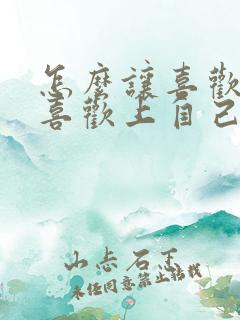 怎麼讓喜歡
喜歡上自己
山志石王
未任同意禁止轉載